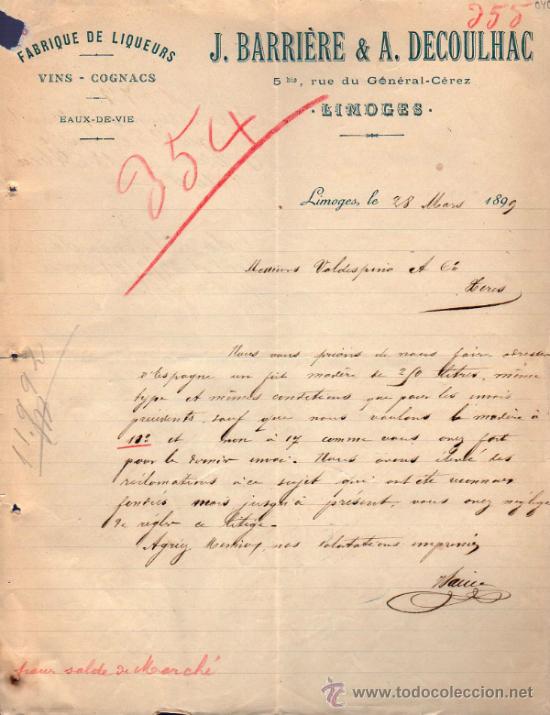 355
FABRIQUE DE LIQUEURS
VINS - COGNACS
EAUX-DE-VIE
J. BARRIÈRE & A. DECOULHAC
5 bis, rue du Général-Cérez
· LIMOGES ·
354
Limoges, le 28 Mars 1899
Messieurs Valdespino & Cie
Xeres
Nous vous prions de nous faire adresser
d'Espagne un fût madère de 250 litres, même
type et mêmes conditions que pour les envois
précédents, sauf que nous voulons le madère à
18° et non à 17 comme vous avez fait
pour le dernier envoi. Nous avons des
réclamations à ce sujet qui ont été reconnues
fondées mais jusqu'à présent, vous avez négligé
de régler ce litige.
Agréez Messieurs, nos salutations empressées
11.992
pour solde de Marché
todocoleccion
www.todocoleccion.com